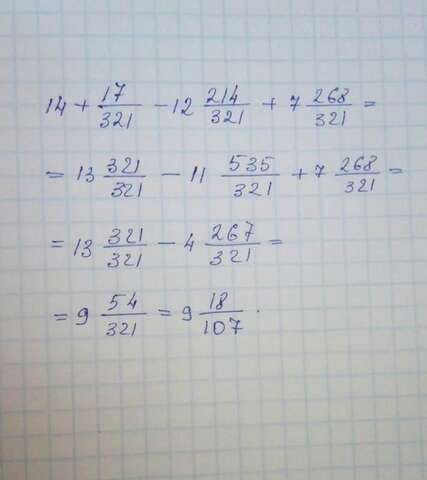 14 + 17/321 - 12 214/321 + 7 268/321 =
= 13 321/321 - 11 535/321 + 7 268/321 =
= 13 321/321 - 4 267/321 =
= 9 54/321 = 9 18/107.